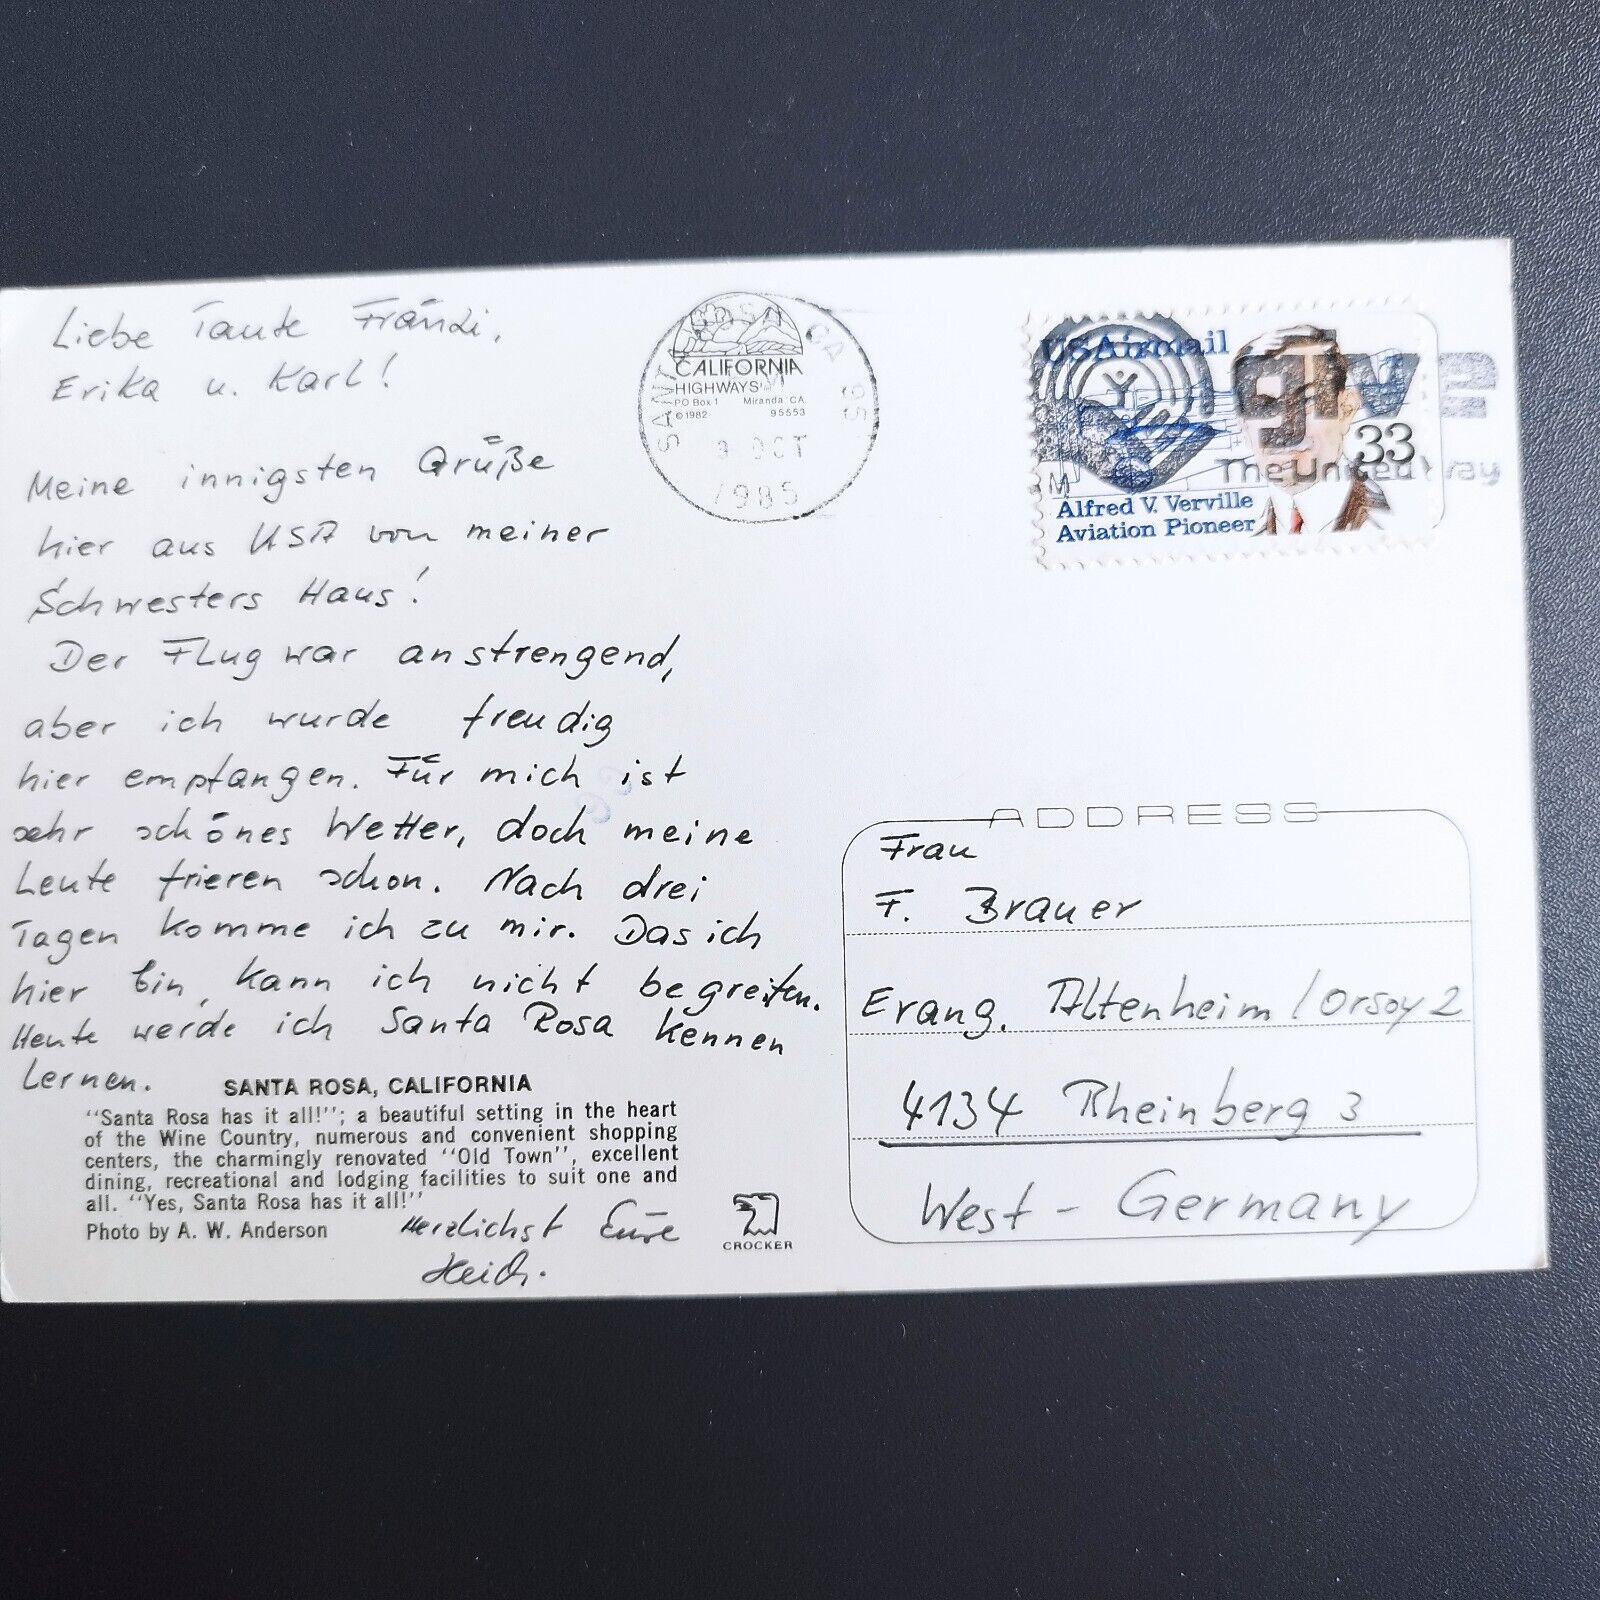 Liebe Tante Fränzi,
Erika u. Karl!
Meine innigsten Grüße
hier aus USA von meiner
Schwesters Haus!
Der Flug war anstrengend,
aber ich wurde freudig
hier empfangen. Für mich ist
sehr schönes Wetter, doch meine
Leute frieren schon. Nach drei
Tagen komme ich zu mir. Das ich
hier bin, kann ich nicht begreifen.
Heute werde ich Santa Rosa kennen
lernen.
SANTA ROSA, CALIFORNIA
"Santa Rosa has it all!"; a beautiful setting in the heart
of the Wine Country, numerous and convenient shopping
centers, the charmingly renovated "Old Town", excellent
dining, recreational and lodging facilities to suit one and
all. "Yes, Santa Rosa has it all!"
Photo by A. W. Anderson
Herzlichst Eure
CROCKER
CALIFORNIA
HIGHWAYS
PO Box 1 Miranda CA
©1982 95553
SANTA ROSA CA
9 OCT
1985
USAirmail
33
Alfred V. Verville
Aviation Pioneer
give 2
The United Way
ADDRESS
Frau
F. Brauer
Evang. Altenheim / Orsoy 2
4134 Rheinberg 3
West - Germany